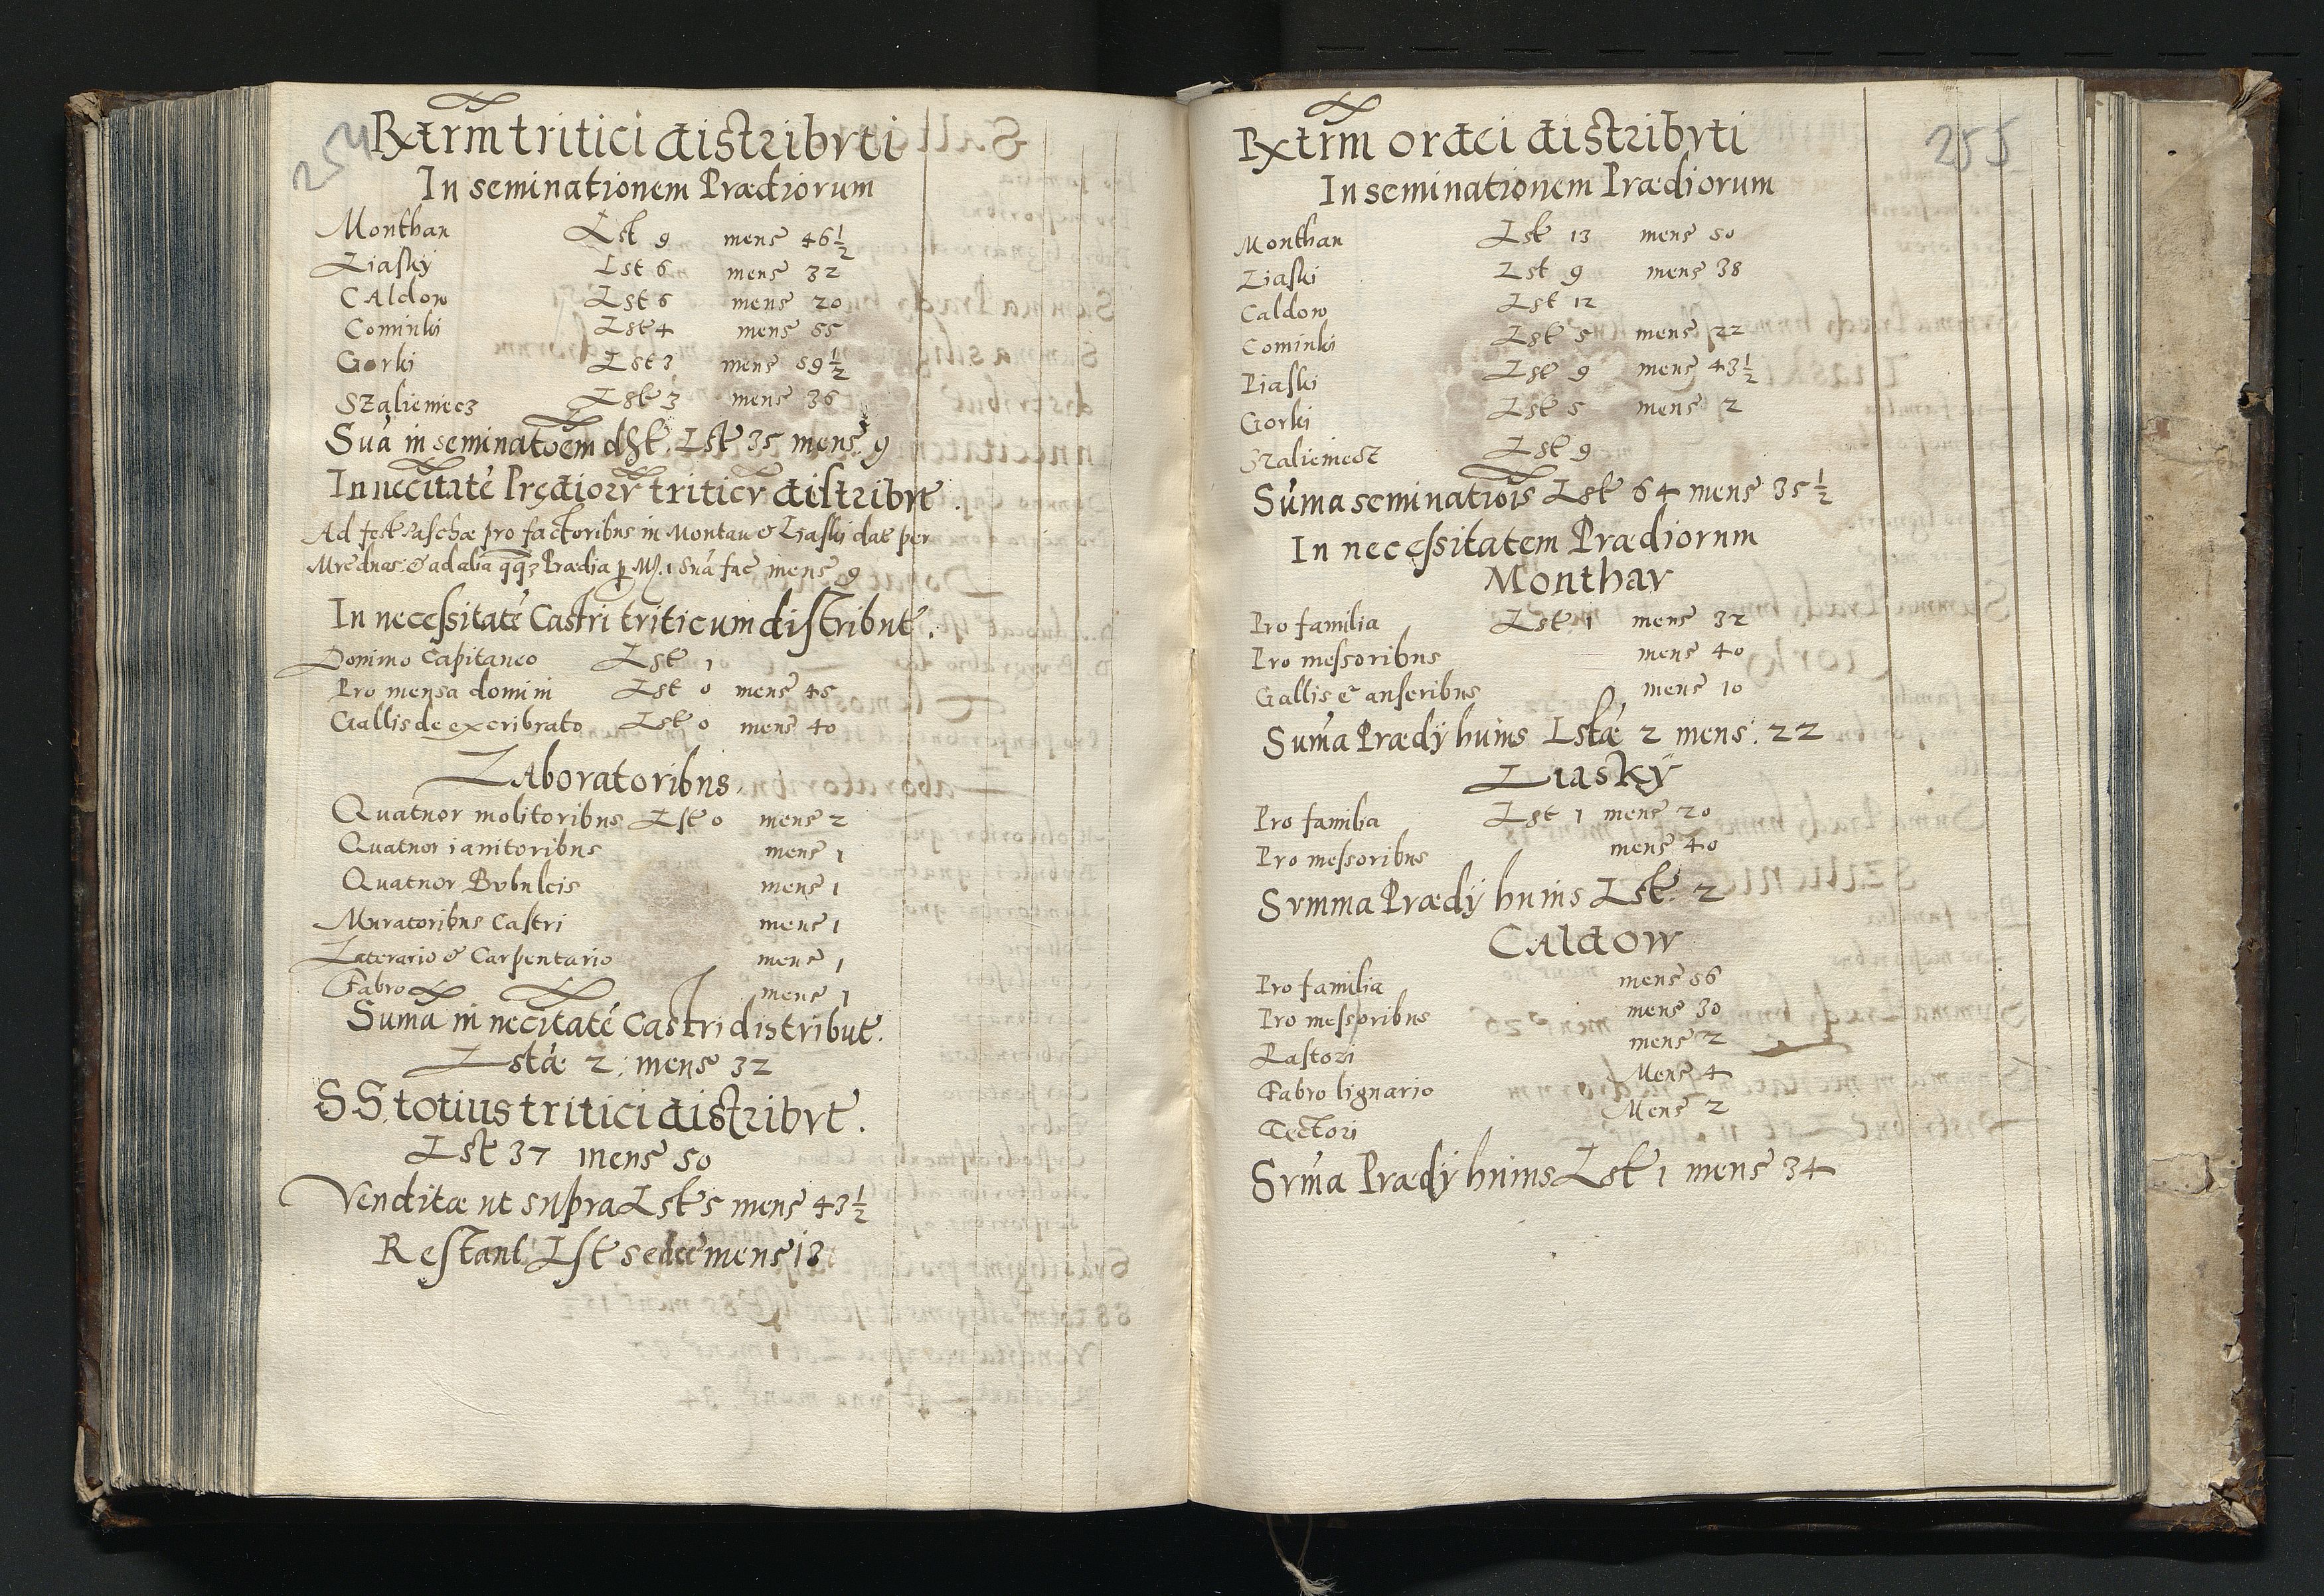 254
Rxtrm tritici distribvti
In seminationem Prædiorum
Monthau Lst 9 mens 46½
Liasky Lst 6 mens 32
CAldow Lst 6 mens 20
Cominki Lst 4 mens 55
Gorki Lst 3 mens 59½
Szaliemiecz Lst 3 mens 36
Sua in seminatoem dst. Lst 35 mens 9
In necitatē Prędiorv triticv distribvt.
Ad fest Paschæ pro factoribus in Montau & Liaski dat per
Mrē dnas: & ad alia qqз Prædia p M. 1 Suā fac mens 9
In necessitatē Castri triticum distribut.
Domino Capitaneo Lst 1
Pro mensa domini Lst 0 mens 45
Gallis de excribrato Lst 0 mens 40
LAboratoribus
Quatuor molitoribus Lst 0 mens 2
Quatuor ianitoribus mens 1
Quatuor Bvbulcis mens 1
Muratoribus Castri mens 1
Laterario & Carpentario mens 1
Fabro mens 1
Suma in necitatē Castri distribut.
Lstæ 2: mens 32
S.S. totius tritici distribvt.
Lst 37 mens 50
Venditæ ut supra Lst 5 mens 43½
Restant Lst sedec mens 13
255
Rxtrm ordci distribvti
In seminationem Prædiorum
Monthau Lst 13 mens 50
Liaski Lst 9 mens 38
Caldow Lst 12
Cominki Lst 5 mens 22
Piaski Lst 9 mens 43½
Gorki Lst 5 mens 2
Szaliemiecz Lst 9
Suma seminatiois Lst 64 mens 35½
In necessitatem Prædiorum
Monthav
Pro familia Lst 1 mens 32
Pro messoribus mens 40
Gallis & anseribus mens 10
Suma Prædÿ huius Lstæ 2 mens: 22
Liaskÿ
Pro familia Lst 1 mens 20
Pro messoribus mens 40
Svmma Prædÿ huius Lst. 2
CAldow
Pro familia mens 56
Pro messoribus mens 30
Pastori mens 2
Fabro lignario Mens 4
Tectori Mens 2
Svma Prædÿ huius Lst 1 mens 34